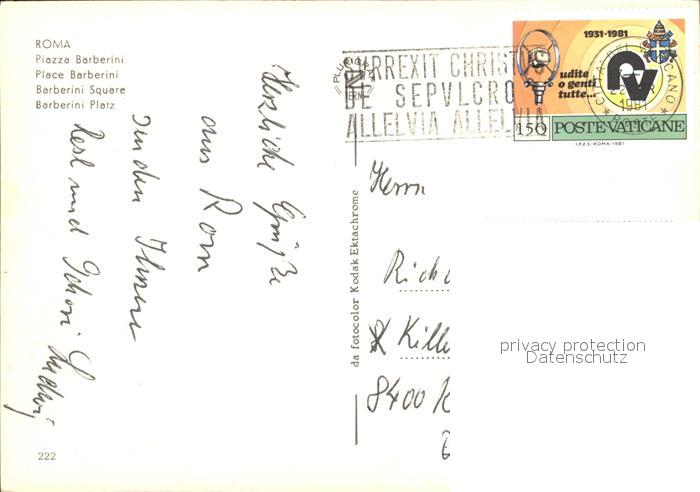 ROMA
Piazza Barberini
Place Barberini
Barberini Square
Barberini Platz
Herzliche Grüße
aus Rom
von den Ihnen
Resl und Schorsi
222
da fotocolor Kodak Ektachrome
SVRREXIT CHRISTVS
DE SEPVLCRO
ALLELVIA ALLELVIA
1931-1981
udite
o genti
tutte...
150 POSTE VATICANE
I.P.Z.S.-ROMA-1981
Herrn
Rich
Kille
8400
privacy protection
Datenschutz